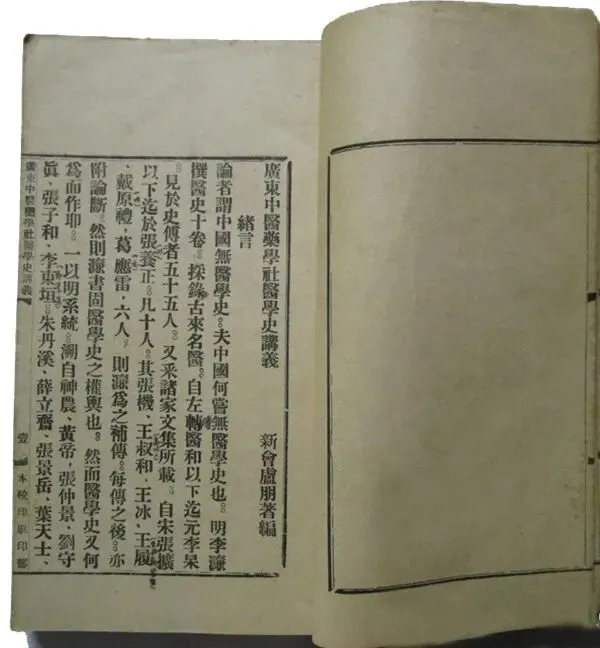 廣東中醫藥學社醫學史講義 新會盧朋著編
緒言
論者謂中國無醫學史。夫中國何嘗無醫學史也。明李濂
撰醫史十卷。採錄古來名醫。自左轉醫和以下迄元李杲
。見於史傳者五十五人。又采諸家文集所載。自宋張擴
以下迄於張養正。凡十人。其張機、王叔和、王冰、王履
、戴原禮、葛應雷、六人。則濂爲之補傳。每傳之後。亦
附論斷。然則濂書固醫學史之權輿也。然而醫學史又何
爲而作耶。一以明系統。溯自神農、黃帝、張仲景、劉守
眞、張子和、李東垣。朱丹溪、薛立齋、張景岳、葉天士、
廣東中醫藥學社醫學史講義
壹
本校印印部